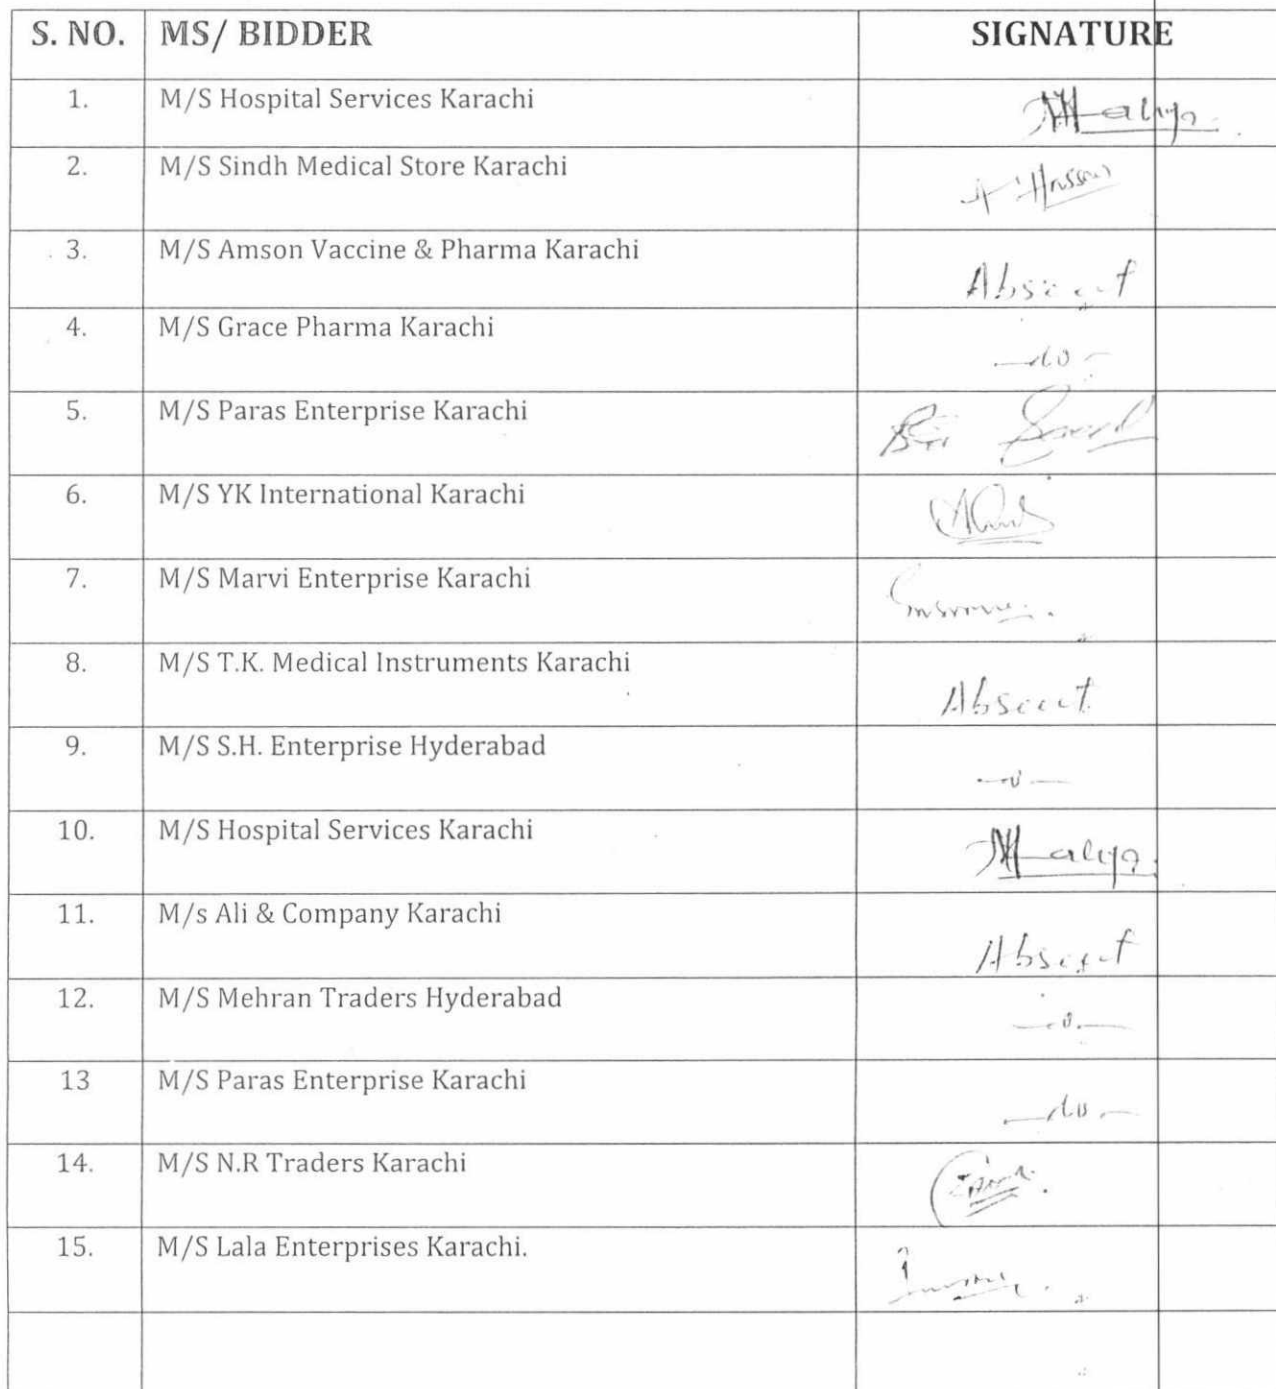 S. NO. MS/ BIDDER SIGNATURE
1. M/S Hospital Services Karachi
2. M/S Sindh Medical Store Karachi Hassan
3. M/S Amson Vaccine & Pharma Karachi Absent
4. M/S Grace Pharma Karachi —do—
5. M/S Paras Enterprise Karachi
6. M/S YK International Karachi
7. M/S Marvi Enterprise Karachi
8. M/S T.K. Medical Instruments Karachi Absent
9. M/S S.H. Enterprise Hyderabad
10. M/S Hospital Services Karachi
11. M/s Ali & Company Karachi Absent
12. M/S Mehran Traders Hyderabad
13 M/S Paras Enterprise Karachi —do—
14. M/S N.R Traders Karachi
15. M/S Lala Enterprises Karachi.